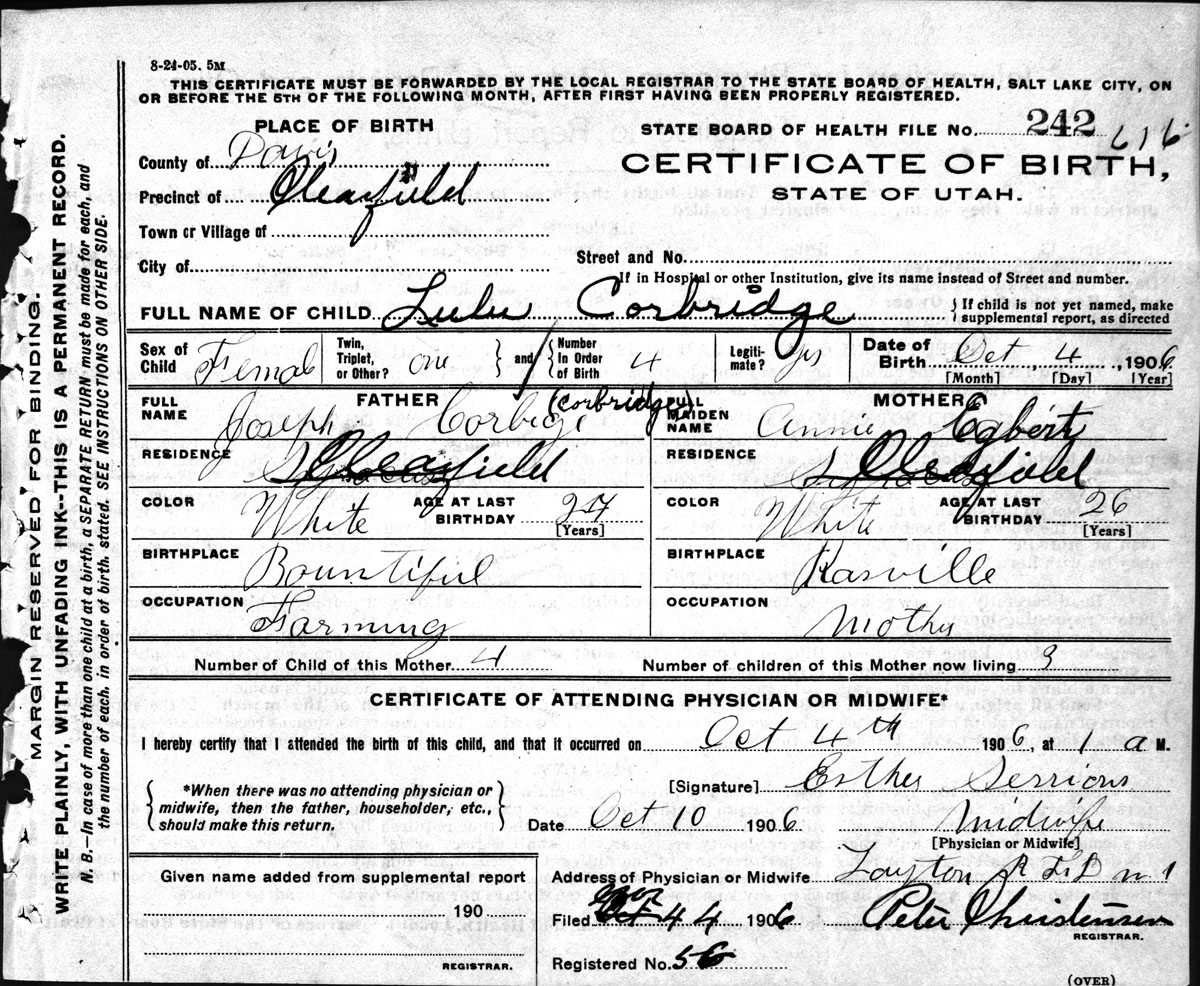 8-24-05. 5M
THIS CERTIFICATE MUST BE FORWARDED BY THE LOCAL REGISTRAR TO THE STATE BOARD OF HEALTH, SALT LAKE CITY, ON
OR BEFORE THE 5TH OF THE FOLLOWING MONTH, AFTER FIRST HAVING BEEN PROPERLY REGISTERED.
PLACE OF BIRTH
STATE BOARD OF HEALTH FILE No. 242 616
County of Davis
CERTIFICATE OF BIRTH,
Precinct of Clearfield
STATE OF UTAH.
Town or Village of
City of
Street and No.
If in Hospital or other Institution, give its name instead of Street and number.
FULL NAME OF CHILD Lulu Corbridge
If child is not yet named, make
supplemental report, as directed
Sex of Child Female
Twin, Triplet, or Other? one
and Number In Order of Birth 4
Legiti-mate? yes
Date of Birth Oct 4, 1906
[Month] [Day] [Year]
FATHER
FULL NAME Joseph Corbige (Corbridge)
RESIDENCE Clearfield
COLOR White
AGE AT LAST BIRTHDAY 27
[Years]
BIRTHPLACE Bountiful
OCCUPATION Farming
MOTHER
FULL MAIDEN NAME Annie Egbert
RESIDENCE Clearfield
COLOR White
AGE AT LAST BIRTHDAY 26
[Years]
BIRTHPLACE Kasville
OCCUPATION Mother
Number of Child of this Mother 4
Number of children of this Mother now living 3
CERTIFICATE OF ATTENDING PHYSICIAN OR MIDWIFE*
I hereby certify that I attended the birth of this child, and that it occurred on Oct 4th 1906, at 1 a M.
*When there was no attending physician or
midwife, then the father, householder, etc.,
should make this return.
[Signature] Esther
Date Oct 10 1906 Midwife
[Physician or Midwife]
Given name added from supplemental report
190
REGISTRAR.
Address of Physician or Midwife Layton R
Filed Nov 4 1906 Peter Christensen
REGISTRAR.
Registered No. 56
(OVER)
MARGIN RESERVED FOR BINDING.
WRITE PLAINLY, WITH UNFADING INK--THIS IS A PERMANENT RECORD.
N. B.—In case of more than one child at a birth, a SEPARATE RETURN must be made for each, and
the number of each, in order of birth, stated. SEE INSTRUCTIONS ON OTHER SIDE.